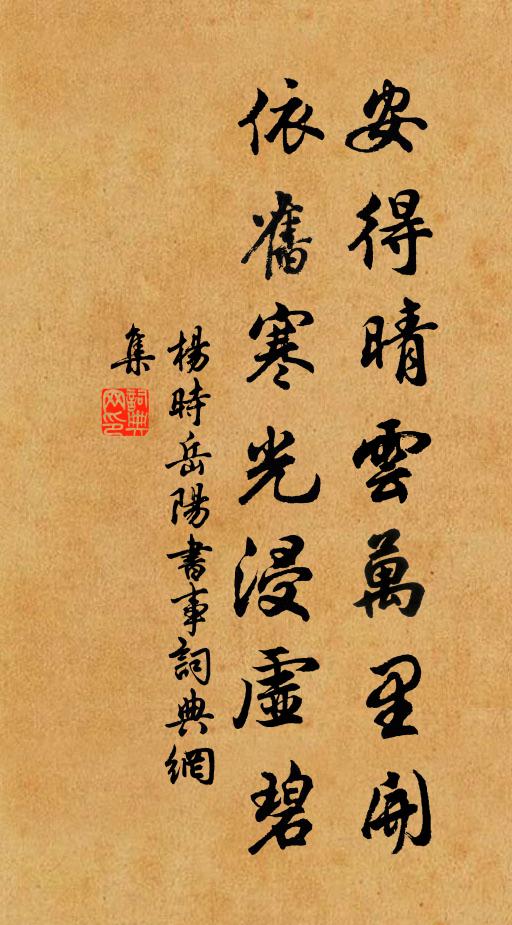 安得晴雲萬里開
依舊寒光浸虛碧
楊時岳陽書事詞典網
集
詞典
网印